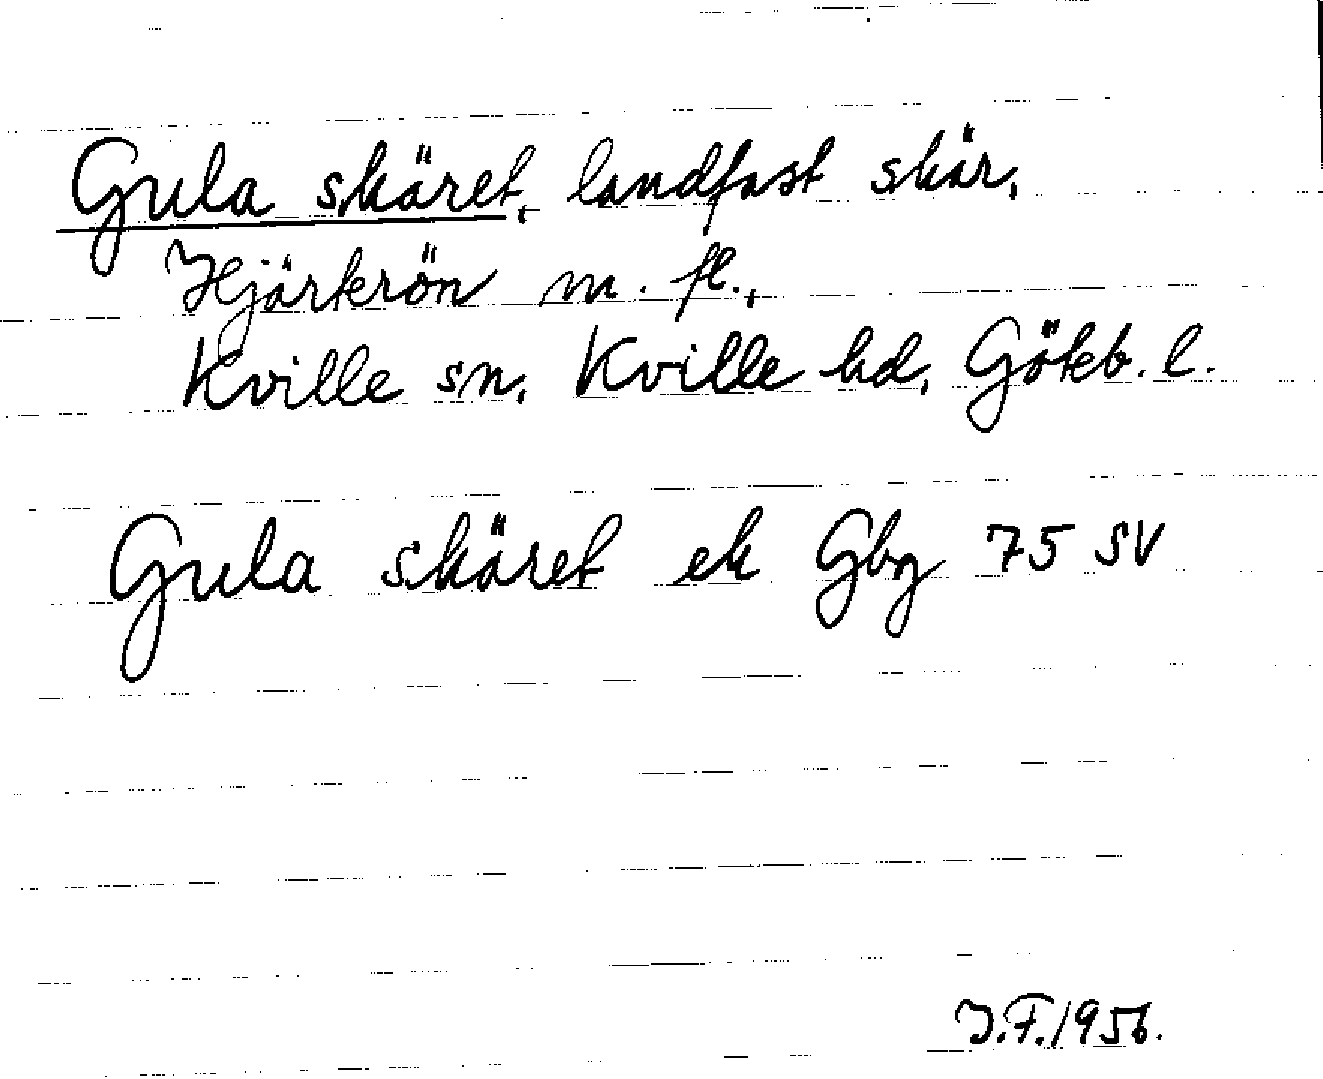 Gula skäret, landfast skär,
Hjärkrön m. fl.,
Kville sn, Kville hd, Göteb. l.
Gula skäret ek Gbg 75 SV
J.F. 1956.